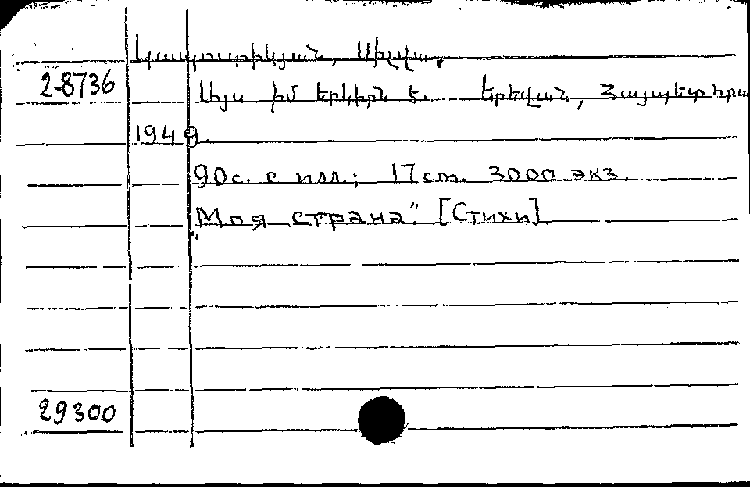 Կապուտիկյան, Սիլվա.
2-8736
Այս իմ երկիրն է. Երեվան, Հայպետհրատ
1949
90с. с илл.; 17см. 3000 экз.
"Моя страна." [Стихи]
29300